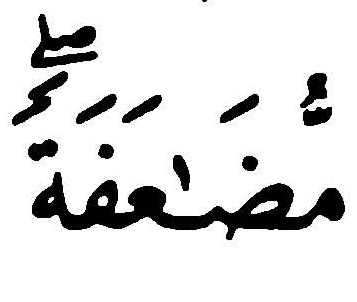 مُّضَٰعَفَةًۖ